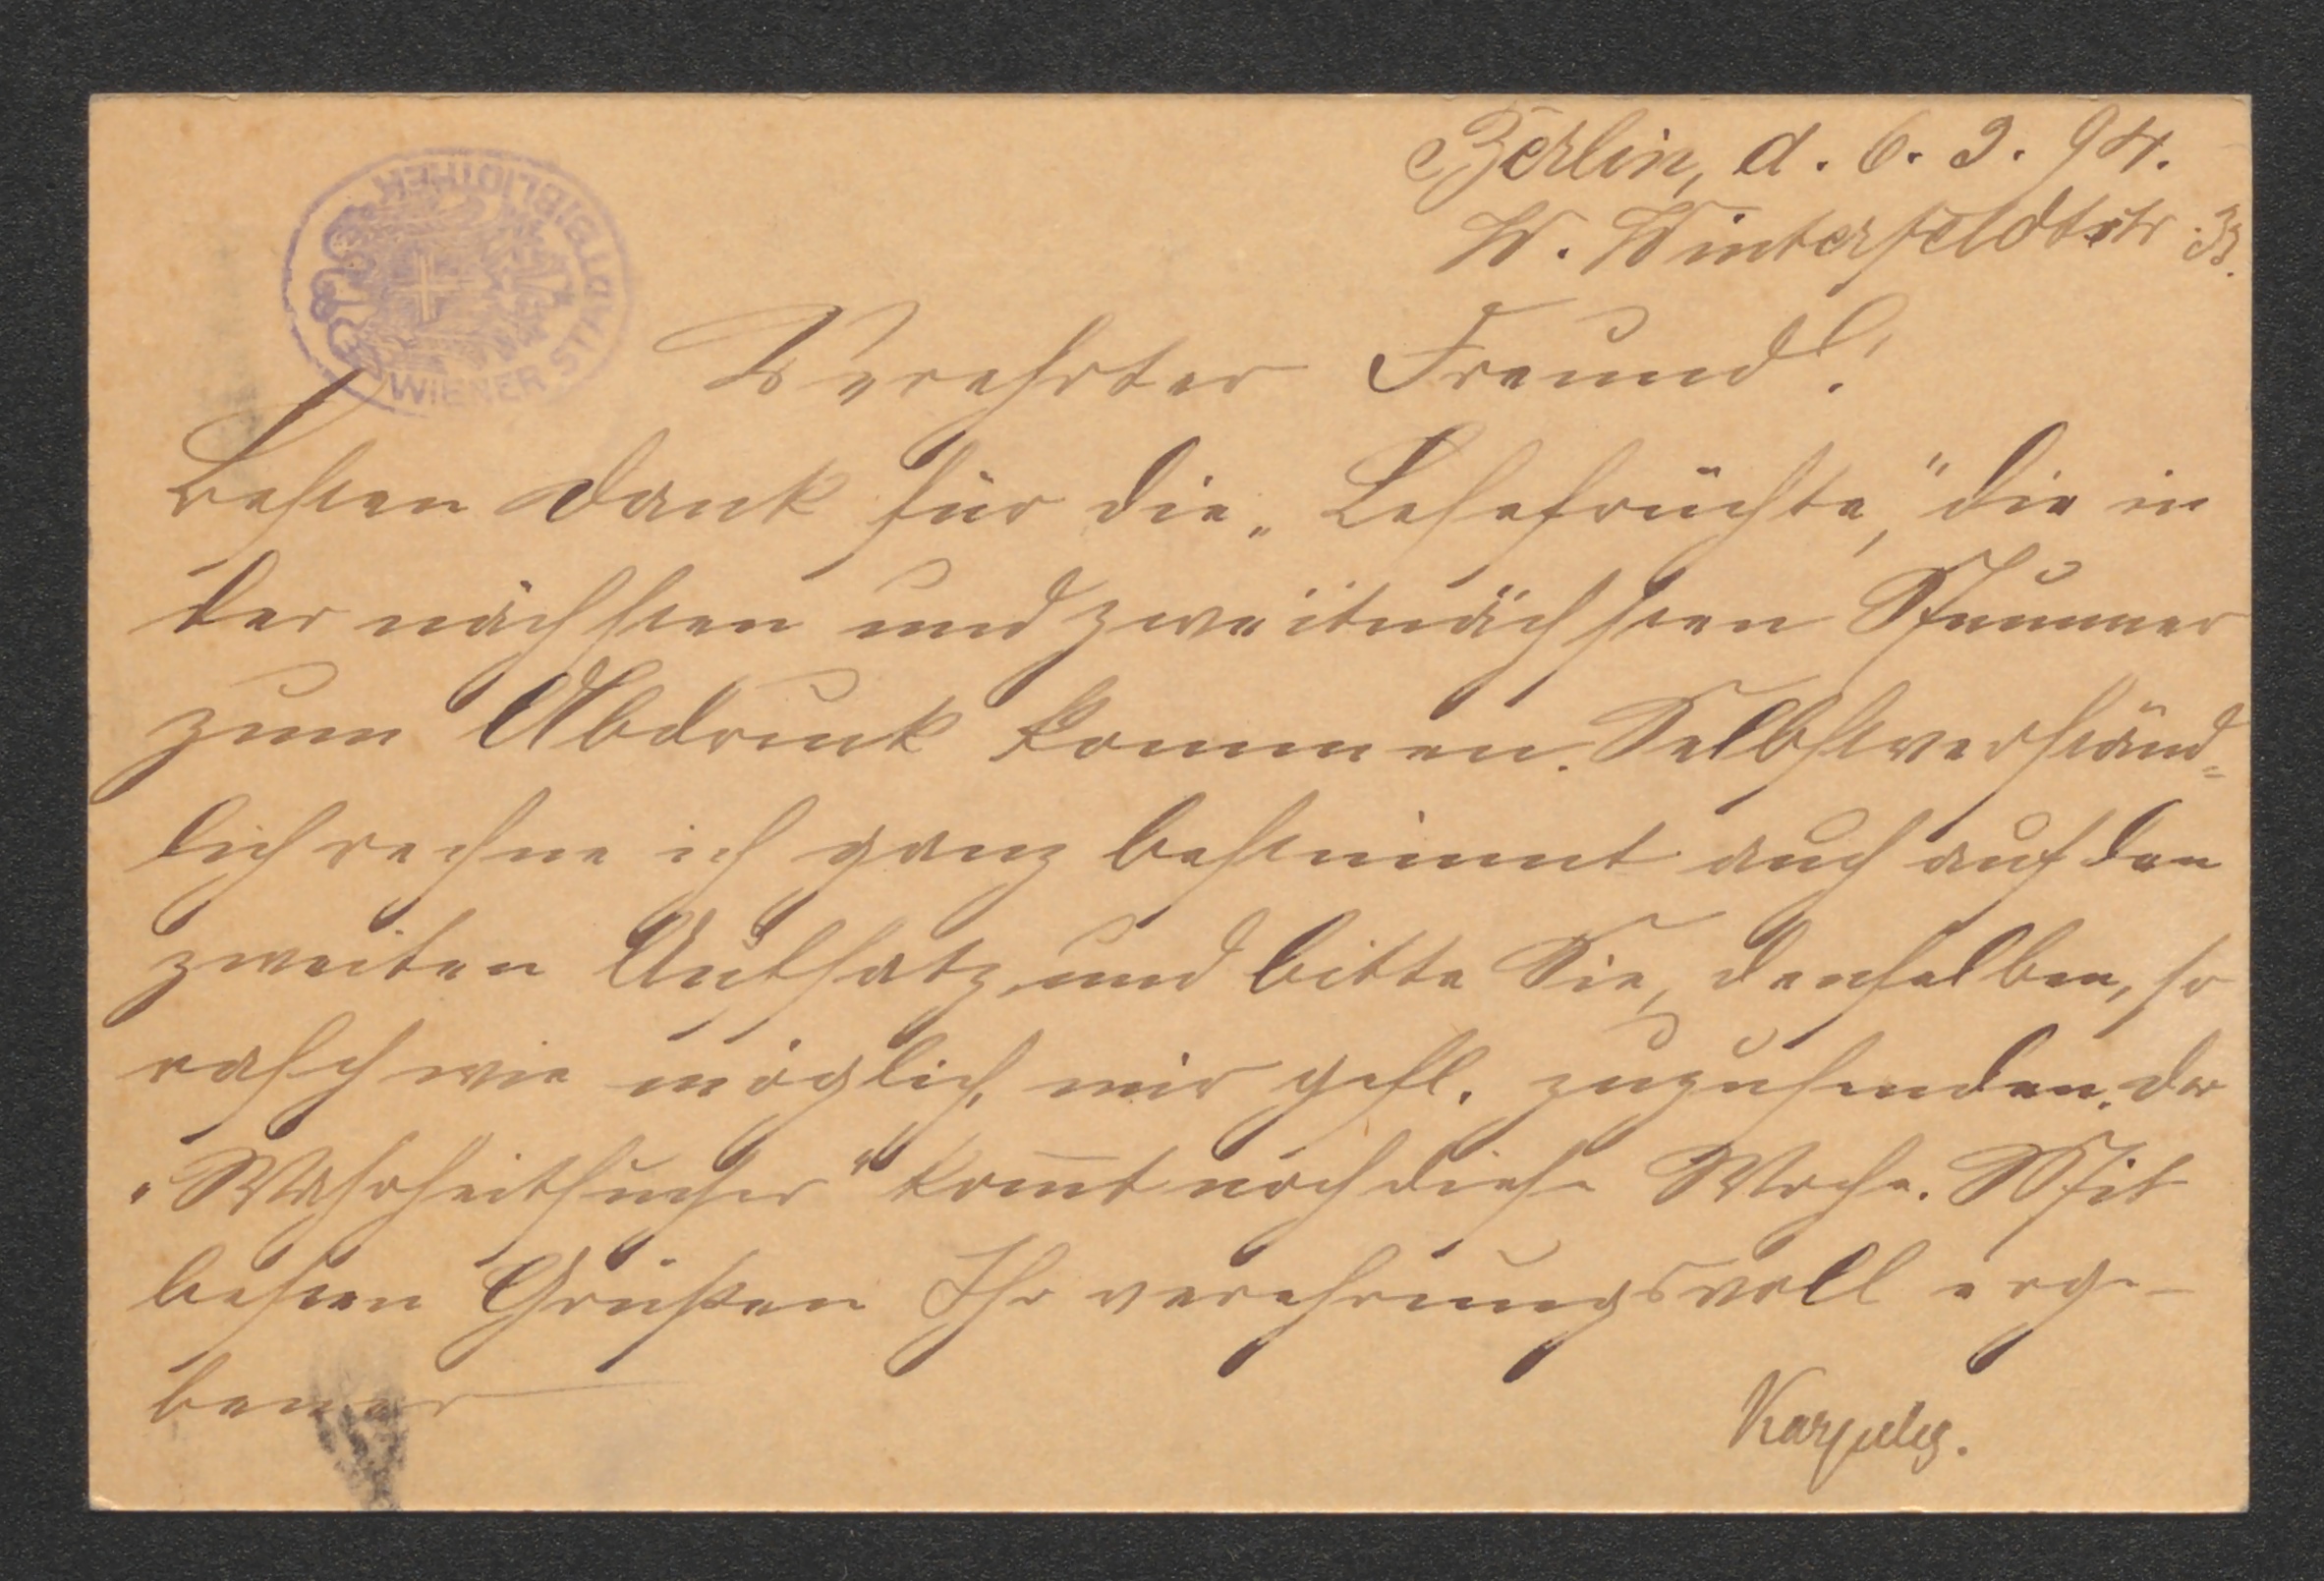 Berlin, d. 6. 3. 94.
W. Winterfeldtstr. 33.
WIENER STADTBIBLIOTHEK
Verehrter Freund!
Besten Dank für die „Lesefrüchte," die in
der nächsten und zweitnächsten Nummer
zum Abdruck kommen. Selbstverständ-
lich rechne ich ganz bestimmt auch auf den
zweiten Aufsatz und bitte Sie, denselben, so
rasch wie möglich, mir gefl. zuzusenden. Der
„Wahrheitsucher" kom̄t noch diese Woche. Mit
besten Grüßen Ihr verehrungsvoll erge-
bener
Karpeles.